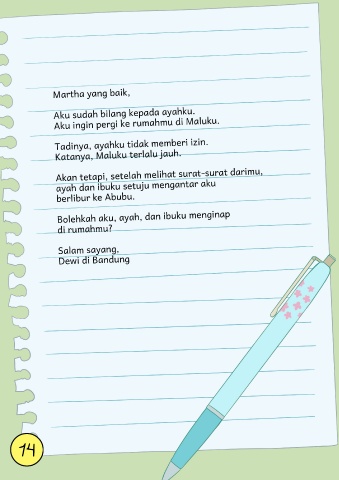 Martha yang baik,
Aku sudah bilang kepada ayahku.
Aku ingin pergi ke rumahmu di Maluku.
Tadinya, ayahku tidak memberi izin.
Katanya, Maluku terlalu jauh.
Akan tetapi, setelah melihat surat-surat darimu,
ayah dan ibuku setuju mengantar aku
berlibur ke Abubu.
Bolehkah aku, ayah, dan ibuku menginap
di rumahmu?
Salam sayang,
Dewi di Bandung
14